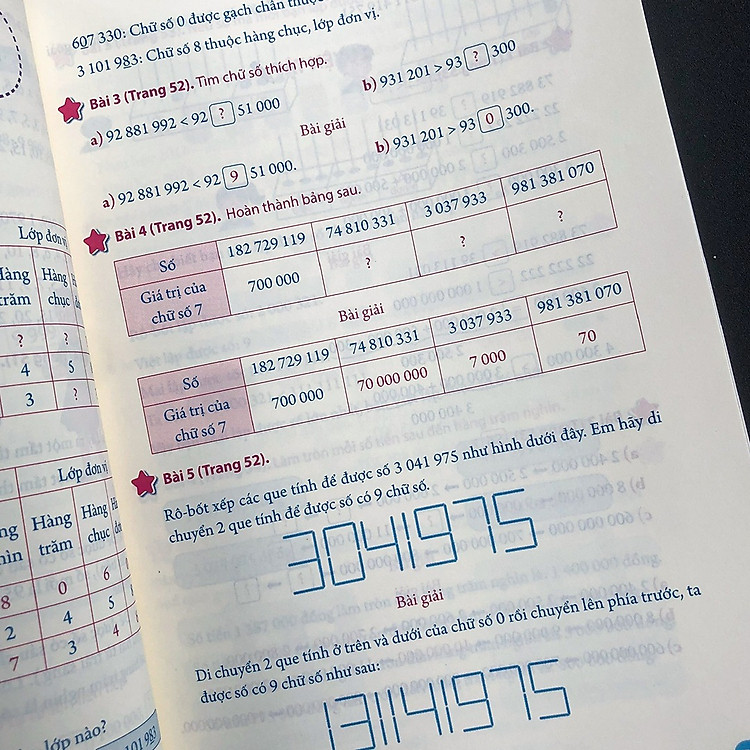 607 330: Chữ số 0 được gạch chân thuộc
3 101 983: Chữ số 8 thuộc hàng chục, lớp đơn vị.
Bài 3 (Trang 52). Tìm chữ số thích hợp.
a) 92 881 992 < 92 ? 51 000
b) 931 201 > 93 ? 300
Bài giải
a) 92 881 992 < 92 9 51 000.
b) 931 201 > 93 0 300.
Bài 4 (Trang 52). Hoàn thành bảng sau.
Số 182 729 119 74 810 331 3 037 933 981 381 070
Giá trị của chữ số 7 700 000 ? ? ?
Bài giải
Số 182 729 119 74 810 331 3 037 933 981 381 070
Giá trị của chữ số 7 700 000 70 000 000 7 000 70
Bài 5 (Trang 52).
Rô-bốt xếp các que tính để được số 3 041 975 như hình dưới đây. Em hãy di
chuyển 2 que tính để được số có 9 chữ số.
3041975
Bài giải
Di chuyển 2 que tính ở trên và dưới của chữ số 0 rồi chuyển lên phía trước, ta
được số có 9 chữ số như sau:
131141975
Lớp đơn vị
Hàng trăm Hàng chục
? ?
4 5
3 ?
Lớp đơn vị
Hàng trăm Hàng chục
8 0 6
2 4 5
7 3 4
lớp nào?
101 983